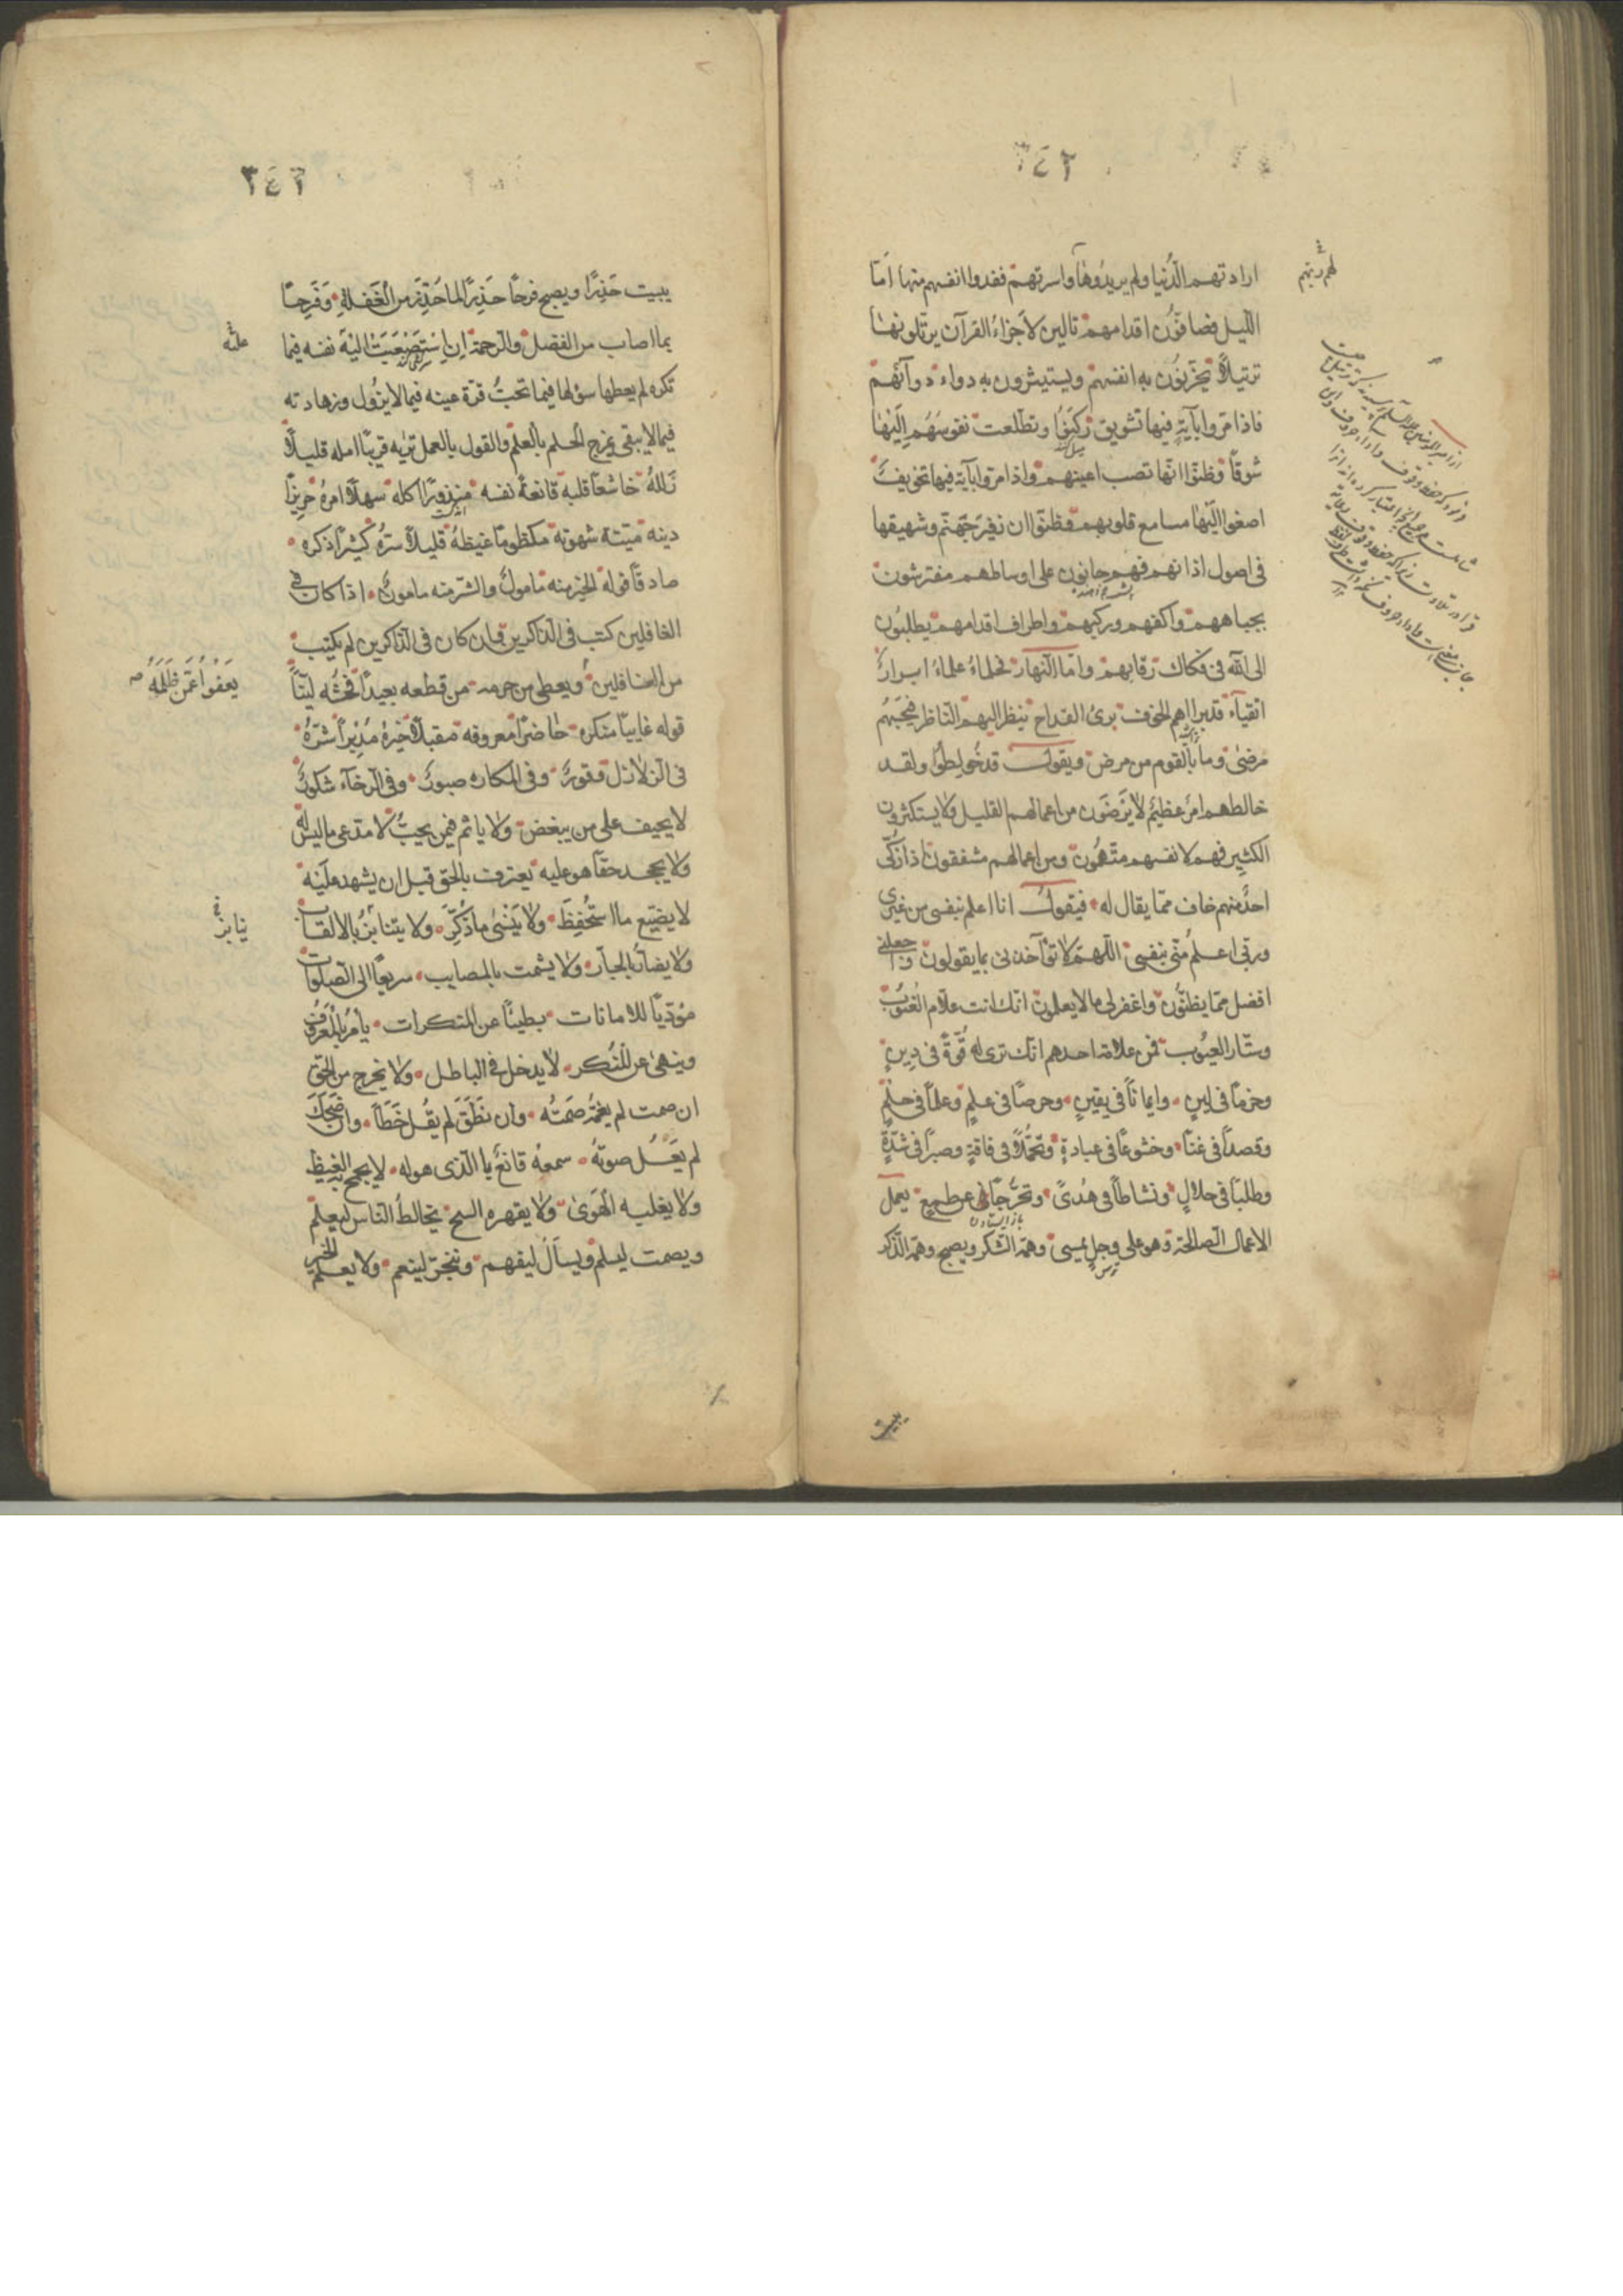 ٣٤٢
ارادتهم الدُّنيا ولم يريدُوها واسرتهم ففدوا انفسهم منها اَمّا
اللّيل فصافّوُن اقدامهم تالين لأجزاءُ القرآن يرتّلونها
ترتيلاً يحزّنوُن به انفسهم ويستثيرون به دواء دوآئهم
فاذا مرّوا بآيةٍ فيها تشويق ركَنوُا وتطلّعت نفوسُهُم اِليْها
شوقاً وظنّوا انّها نصب اعينهم واذا مرّوا بآية فيها تخويفٌ
اصغوا اليْها مسامع قلوبهم وظنّوا ان زفير جهنّم وشهيقها
فى اصول اذانهم فهم حانون على اوساطهم مفترشون
بجباههم واكفهم وركبهم واطراف اقدامهم يطلبُون
الى الله فى فكاك رقابهم وامّا النّهار فحلماءُ علماءُ ابرارٌ
اتقيآء قد براهم الخوف برى القداح ينظر اليهم النّاظر فيحسبُهُم
مرضىٰ وما بالقوم من مرض ويقول قد خُولِطُوا ولقد
خالطهم امرٌ عظيمٌ لا يَرْضَوْن من اعمالهم القليل ولا يستكثرون
الكثير فهم لانفسهم متّهمُون ومن اعمالهم مشفقون اذا زُكّى
احدٌ منهم خاف ممّا يقال له فيقولُ انا اعلم بنفسى من غيرى
وربّى اعلمُ منّى بنفسى اللّهمّ لا تؤآخذنى بما يقولون واجعلنى
افضل ممّا يظنّون واغفر لى ما لا يعلمون انّك انت علّام الغُيوُب
وستّار العيوُب فمن علامة احدهم انّك ترى له قُوّةً فى دينٍ
وحزماً فى لينٍ وايماناً فى يقينٍ وحرصاً فى علمٍ وعلماً فى حلمٍ
وقصداً فى غنىً وخشوعاً فى عبادةٍ وتجمّلاً فى فاقةٍ وصبراً فى شدّةٍ
وطلباً فى حلالٍ ونشاطاً فى هُدىً وتحرُّجاً عن طمعٍ يعمل
الاعمال الصالحة وهو على وجلٍ يمسى وهمّه الشّكر ويصبح وهمّه الذّكر
يبيت
٣٤٢
يبيت حَذِرًا ويصبح فرحاً حَذِرًا لما حُذِّرَ من الْغَفلةِ وَفَرِحاً
بما اصاب من الفضل والرحمة اِنِ اسْتَصْعَبَتْ عَليْهِ نفسه فيما
علَيْه
تكره لم يعطها سؤلها فيما تحبُّ قرّة عينه فيما لا يزُول وزهادته
فيما لا يبقى يمزج الحلم بالعلم والقول بالعمل تريٰه قريباً امله قليلاً
زَلَلهُ خاشعاً قلبه قانعةً نفسه منزوراً اكله سهلاً امرهُ حريزاً
دينه ميّتة شهوته مكظوماً غيظهُ قليلاً شرّهُ كثيراً ذكره
صادقاً قوله الخير منه مامولٌ والشّر منه مامونٌ اذا كان فى
الغافلين كتب فى الذاكرين وان كان فى الذّاكرين لم يكتب
من الغافلين ويعطى من حرمه من قطعه بعيداً فحشه ليّناً
يَعفُوا عَمَّن ظَلَمَهُ
قوله غايباً منكره حاضراً معروفه مقبلاً خيرهُ مُدْبِراً شَرّهُ
فى الزلازل وقورٌ وفى المكاره صبورٌ وفى الرخآء شكورٌ
لا يحيف على من يبغض ولا ياثم فيمن يحبُّ لا مدّعى ما ليس له
ولا يجحد حقّاً هو عليه يعترف بالحق قبل ان يشهد عليْه
لا يضيّع ما استُحْفِظَ ولا يَنْسَىٰ ما ذُكِّرَ ولا يتنابزُ بالالقاب
ينابز
ولا يضآرّ بالجار ولا يشمت بالمصايب سريعاً الى الصّلوات
مؤدّياً للامانات بطيئاً عن المنكرات يأمر بالمعرُوف
وينهىٰ عن المنُكر لا يدخل فى الباطل ولا يخرج من الحقّ
ان صمت لم يغمّهُ صَمتُه وان نَطَقَ لم يَقُل خَطَأ وان ضَحِكَ
لم يَعْلُ صوتهُ سمعهُ قانعٌ بالّذى هو له لا يجمح به الغيظ
ولا يغلبه الْهَوىٰ ولا يقهره الشح يخالطُ النّاس ليعلم
ويصمت ليسلم ويسألُ ليفهم ويتّجر ليغنم ولا يعمل الخير